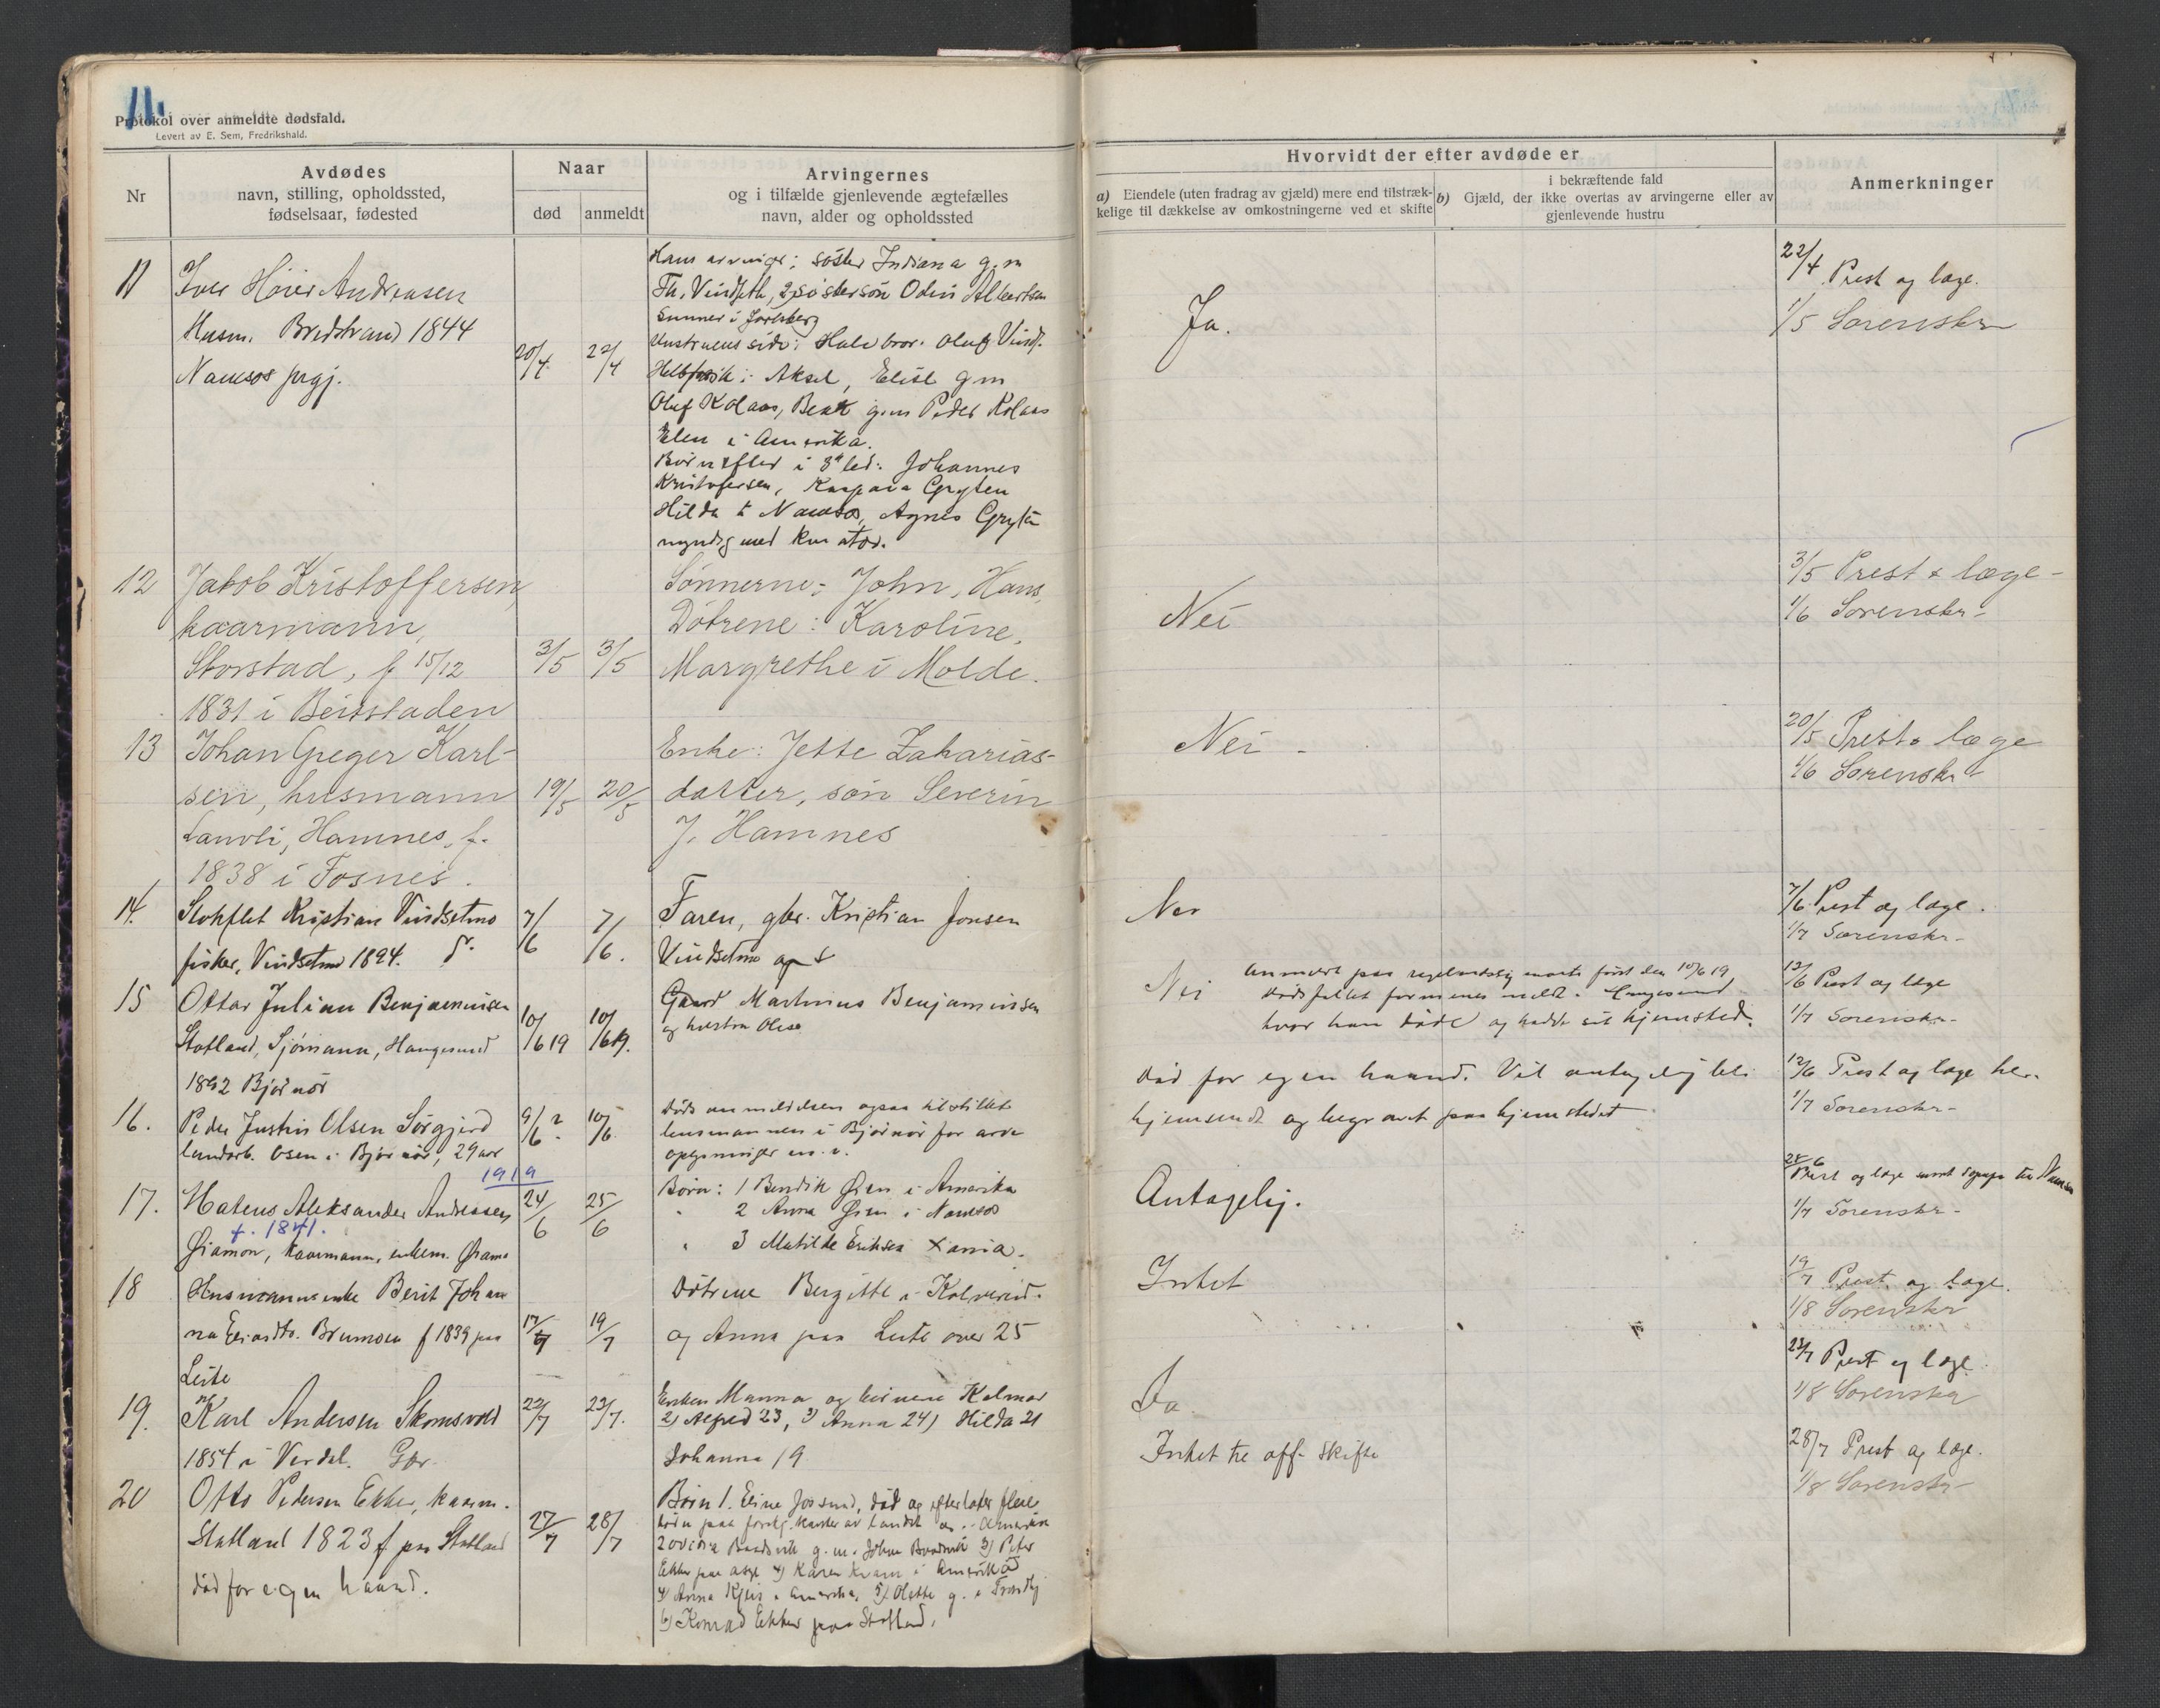 11.
Protokol over anmeldte dødsfald.
Levert av E. Sem, Fredrikshald.
Nr
Avdødes
navn, stilling, opholdssted,
fødselsaar, fødested
Naar
død
anmeldt
Arvingernes
og i tilfælde gjenlevende ægtefælles
navn, alder og opholdssted
Hvorvidt der efter avdøde er
a) Eiendele (uten fradrag av gjæld) mere end tilstræk-
kelige til dækkelse av omkostningerne ved et skifte
i bekræftende fald
b) Gjæld, der ikke overtas av arvingerne eller av
gjenlevende hustru
Anmerkninger
11
Høier Andreasen
Husm. Bredstrand 1844
Namsos prgj.
20/4
22/4
Hans arvinger: søster Indiana g.m
Th. Vindseth, 2) søstersøn Odin Albertsen
Hustruens side: Halvbror. Oluf Vinds.
Aksel, Elise g m
Oluf Kolaas, g.m Peder Kolaas
Elen i Amerika.
Børn efter i 3' led: Johannes
Kristofersen, Gryten
Hilda i Namsos, Agnes Gryten
myndig med kurator.
Ja.
22/4 Prest og læge.
1/5 Sorenskr
12
Jakob Kristoffersen,
kaarmann,
Storstad, f 15/12
1831 i Beitstaden
3/5
3/5
Sønnerne: John, Hans,
Døtrene: Karoline,
Margrethe i Molde.
Nei
3/5 Prest & læge-
1/6 Sorenskr-
13
Johan Greger Karl-
sen, husmann
Hamnes, f.
1838 i Fosnes.
19/5
20/5
Enke: Jette Zakarias-
datter, søn Severin
J. Hamnes
Nei -
20/5 Prest & læge
1/6 Sorenskr
14.
Kristian Vindsetmo
fisker, Vindsetmo 1894.
7/6
7/6.
Faren, gbr. Kristian Jonsen
Vindsetmo
Nei
7/6 Prest og læge.
1/7 Sorenskr-
15
Ottar Julian Benjaminsen
Statland, Sjømann, Haugesund
1892 Bjørnør
10/6 19
10/6 19.
Martinus Benjaminsen
og hustru
Nei
paa regelmæssig maate først den 10/6 19
Dødsfaldet formenes meldt i Haugesund
hvor han døde og hadde sit hjemsted.
12/6 Prest og læge
1/7 Sorenskr-
16.
Peder Justin Olsen Sørgjerd
landarb. Osen i Bjørnør, 29 aar
9/6 ?
10/6
Dødsanmeldelsen ogsaa tilstillet
lensmannen i Bjørnør for arve
oplysninger m. v.
Død for egen haand. Vil antagelig bli
hjemsendt og begravet paa hjemstedet
12/6 Prest og læge her.
1/7 Sorenskr-
1919
17.
Mateus Aleksander Andreassen
f. 1841.
kaarmann, enkem.
24/6
25/6
Børn: 1 Bendik Øien i Amerika
" 2 Anna Øien i Namsos
" 3 Matilde Eriksen Xania.
Antagelig.
Prest og læge samt
1/7 Sorenskr-
18
Husmannsenke Berit Johan
na Brumoen f 1839 paa
Leite
17/7
19/7
Døtrene Bergitte i Kolvereid.
og Anna paa Leite over 25
Intet
19/7 Prest og læge.
1/8 Sorenskr
19.
Karl Andersen Skomsvold
1854 i Verdal. Gbr.
22/7
23/7.
Enken Manna og børnene Kalmar
2) Alfred 23, 3) Anna 24) Hilda 21
Johanna 19
Ja
23/7 Prest og læge.
1/8 Sorenskr
20
Otto Pedersen Ekker, kaarm.
Statland 1823 f paa Statland
død for egen haand.
27/7
28/7
Børn 1. Eline Jøssund, død og efterlater flere
børn paa forskj. kanter av landet og i Amerika
g. m. Johan 3) Peter
Ekker paa 4) Karen i Amerika
4) Anna i Amerika, 5) Olette g. i Trondhj
6) Konrad Ekker paa Statland.
Intet til off. skifte
28/7 Prest og læge.
1/8 Sorenskr-